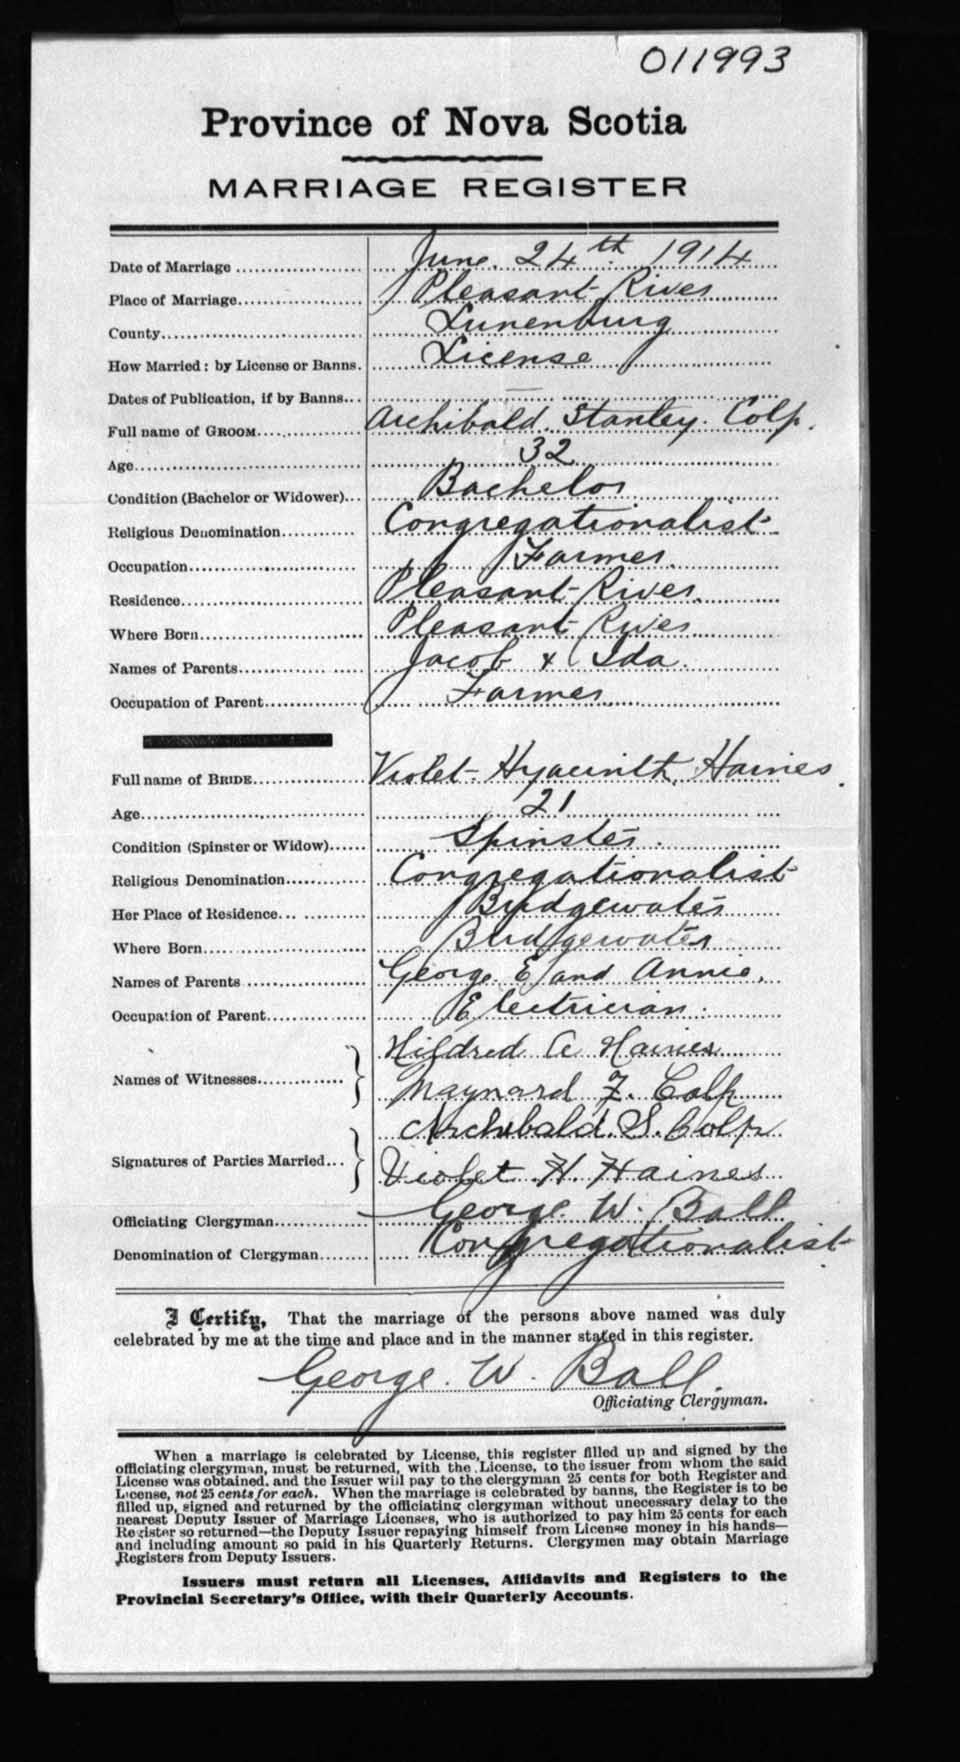 011993
Province of Nova Scotia
MARRIAGE REGISTER
Date of Marriage June. 24th. 1914
Place of Marriage Pleasant River
County Lunenburg
How Married: by License or Banns. License
Dates of Publication, if by Banns... —
Full name of GROOM Archibald. Stanley. Colp.
Age 32
Condition (Bachelor or Widower)... Bachelor
Religious Denomination Congregationalist
Occupation Farmer.
Residence Pleasant River.
Where Born Pleasant River
Names of Parents Jacob & Ida.
Occupation of Parent Farmer
Full name of BRIDE Violet Hyacinth. Haines.
Age 21
Condition (Spinster or Widow) Spinster.
Religious Denomination Congregationalist
Her Place of Residence Bridgewater
Where Born Bridgewater
Names of Parents George E and Annie.
Occupation of Parent Electrician.
Names of Witnesses Hildred A Haines
Maynard F. Colp
Signatures of Parties Married Archibald. S. Colp
Violet H. Haines
Officiating Clergyman George W. Ball
Denomination of Clergyman Congregationalist
I Certify, That the marriage of the persons above named was duly
celebrated by me at the time and place and in the manner stated in this register.
George. W. Ball.
Officiating Clergyman.
When a marriage is celebrated by License, this register filled up and signed by the
officiating clergyman, must be returned, with the License, to the issuer from whom the said
License was obtained, and the Issuer will pay to the clergyman 25 cents for both Register and
License, not 25 cents for each. When the marriage is celebrated by banns, the Register is to be
filled up, signed and returned by the officiating clergyman without unnecessary delay to the
nearest Deputy Issuer of Marriage Licenses, who is authorized to pay him 25 cents for each
Register so returned—the Deputy Issuer repaying himself from License money in his hands—
and including amount so paid in his Quarterly Returns. Clergymen may obtain Marriage
Registers from Deputy Issuers.
Issuers must return all Licenses, Affidavits and Registers to the
Provincial Secretary's Office, with their Quarterly Accounts.